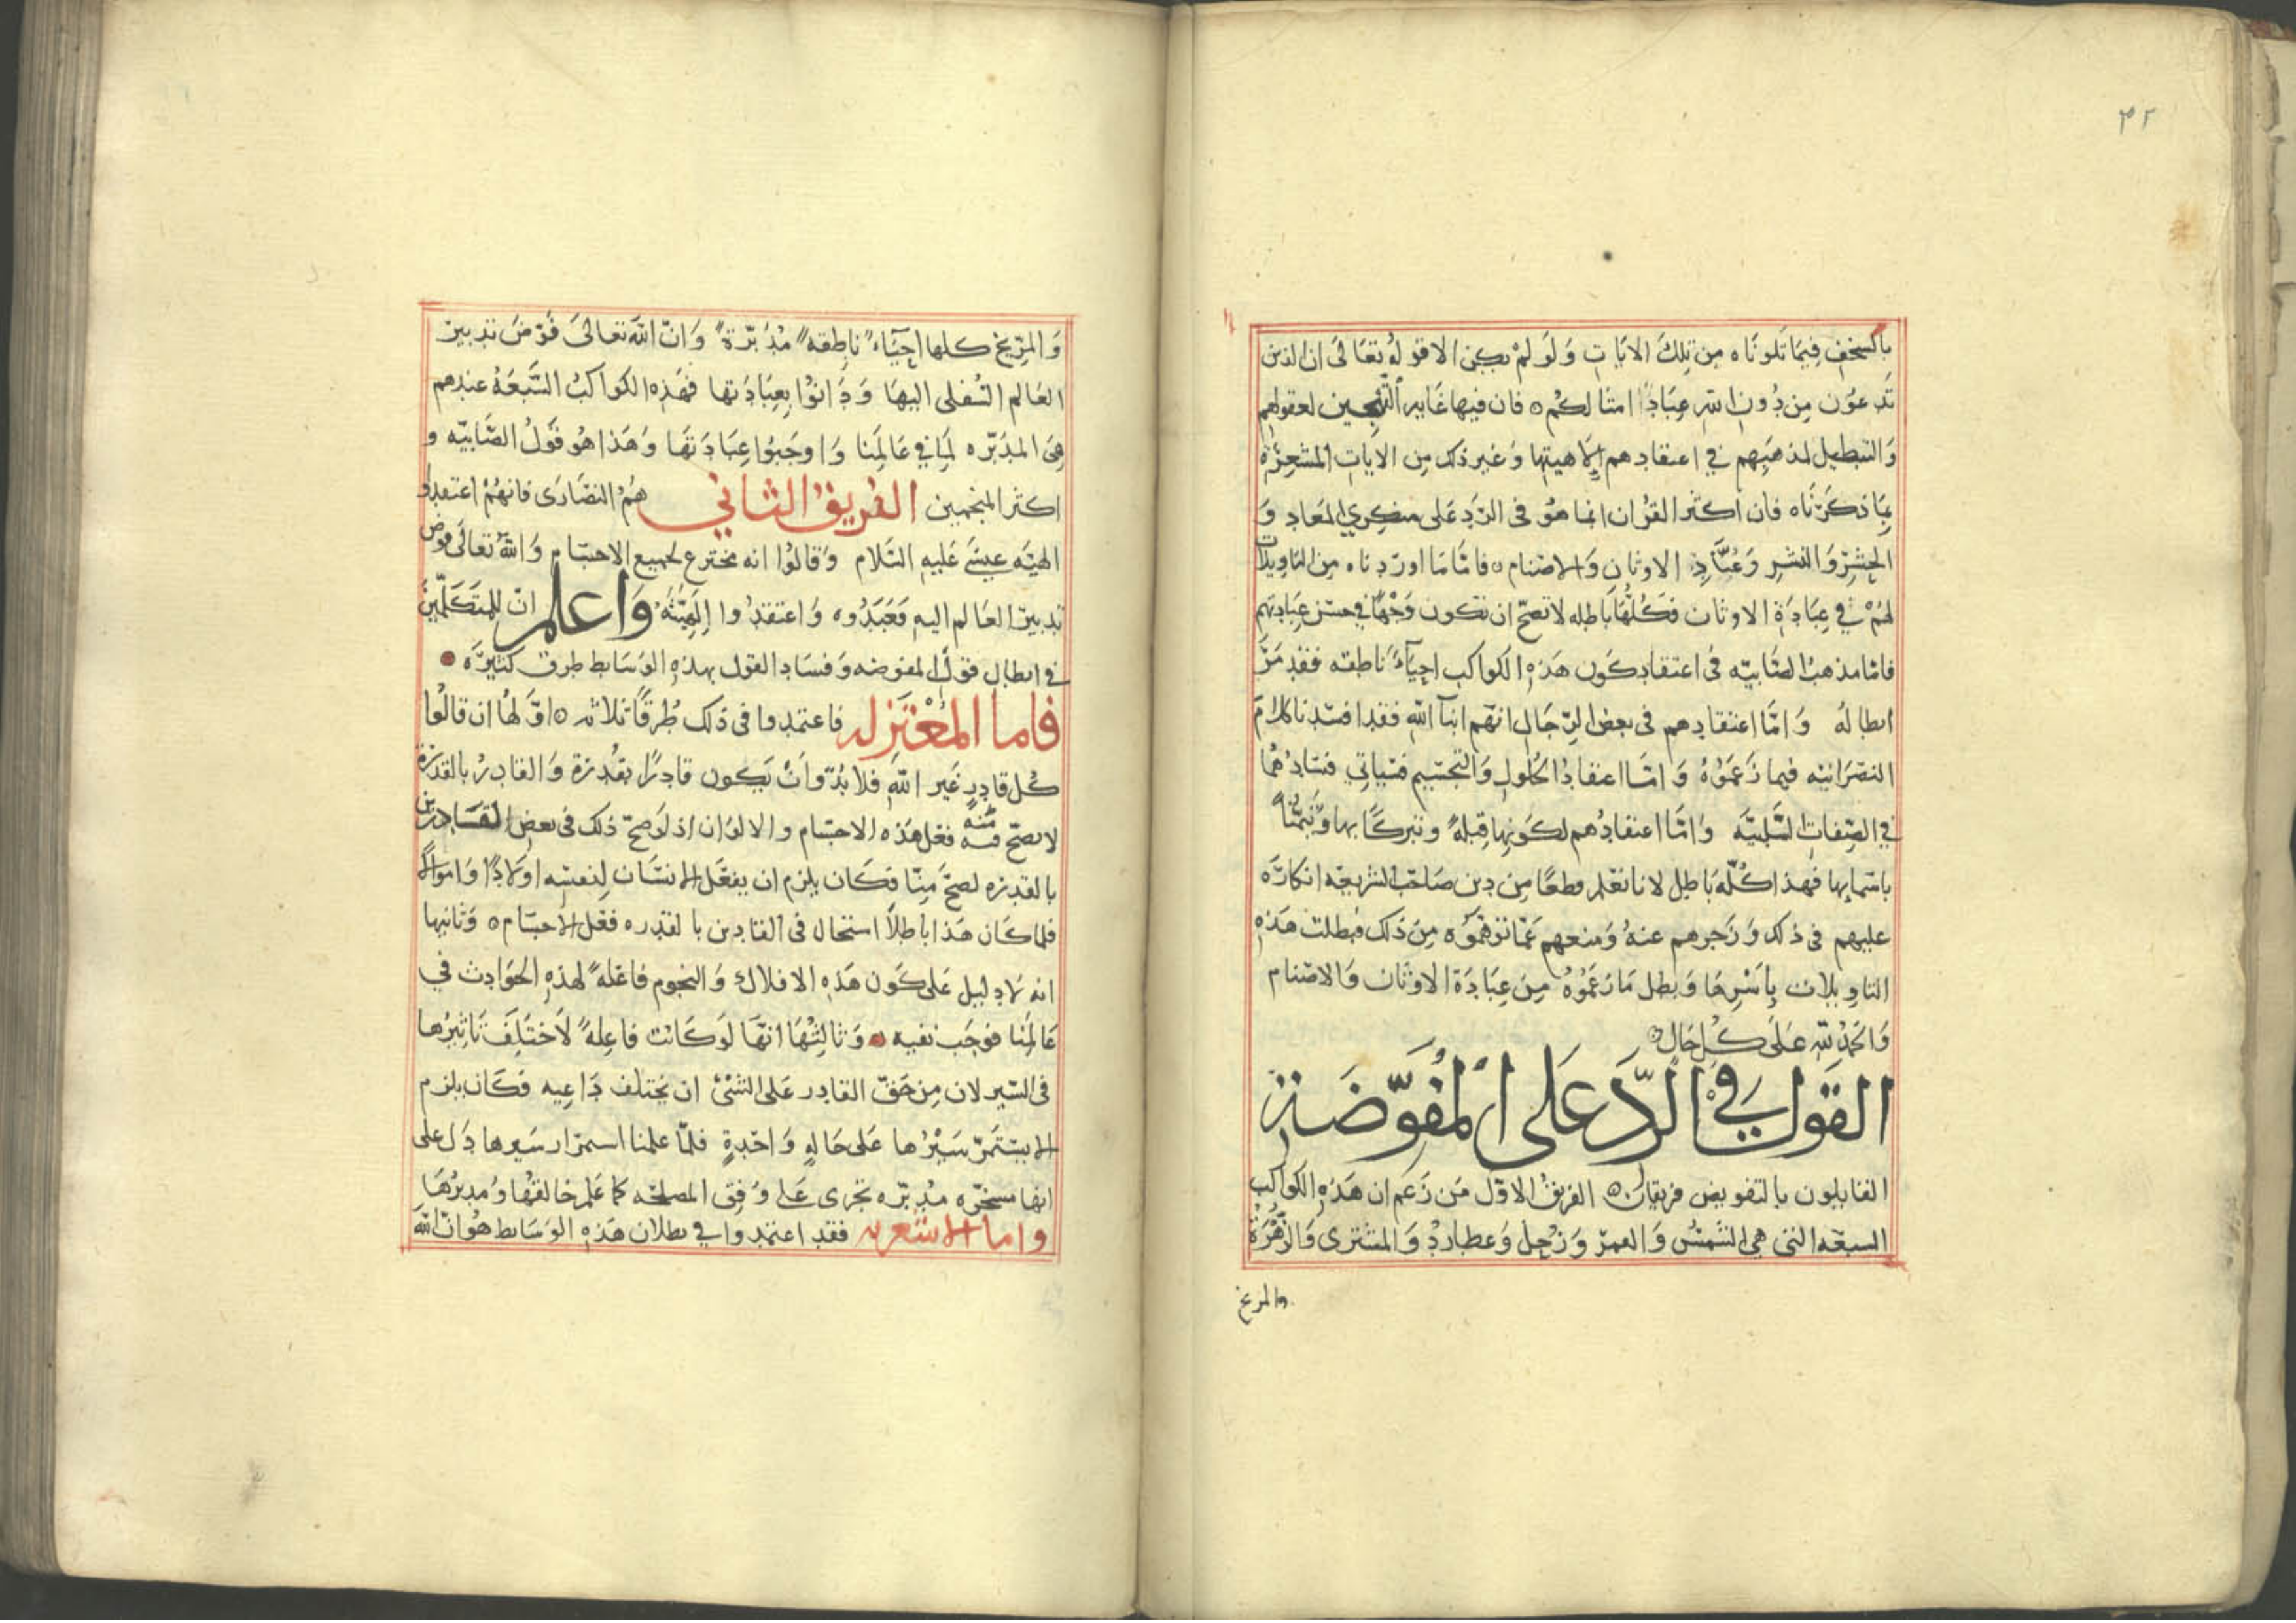 ٤٢
بالسخف فيما تلوناه من تلك الايات ولو لم يكن الا قوله تعالى ان الذين
تدعون من دون الله عبادا امثالكم ٥ فان فيها غاية التهجين لعقولهم
والتبطيل لمذهبهم في اعتقادهم لالاهيتها وغير ذلك من الايات المشعرة
بما ذكرناه فان اكثر القران انما هو في الرد على منكري المعاد و
الحشر والنشر وعباد الاوثان والاصنام ٥ فاما ما اوردناه من التاويلات
لهم في عبادة الاوثان فكلها باطله لا تصح ان تكون وجها في حسن عبادتهم
فاما مذهب الصابيه في اعتقاد كون هذه الكواكب احياء ناطقه فقد مر
ابطاله واما اعتقادهم في بعض الرجال انهم ابناء الله فقد افسدنا كلام
النصرانيه فيما زعموه واما اعتقاد الحلول والتجسيم فسياتي فسادهما
في الصفات السلبيه واما اعتقادهم لكونها قبلة وتبركا بها وتيمنا
باسمايها فهذا كله باطل لانا نعلم قطعا من دين صاحب الشريعه انكاره
عليهم في ذلك وزجرهم عنه ومنعهم عما توهموه من ذلك فبطلت هذه
التاويلات باسرها وبطل ما زعموه من عبادة الاوثان والاصنام
والحمد لله على كل حال ٥
القول في الرد على المفوضة
القايلون بالتفويض فريقان ٥ الفريق الاول من زعم ان هذه الكواكب
السبعه التي هي الشمس والقمر وزحل وعطارد والمشترى والزهرة
والمريخ
والمريخ كلها احياء ناطقه مدبرة وان الله تعالى فوض تدبير
العالم السفلى اليها ودانوا بعبادتها فهذه الكواكب السبعة عندهم
هي المدبره لما في عالمنا واوجبوا عبادتها وهذا هو قول الصابيه و
اكثر المنجمين الفريق الثاني هم النصارى فانهم اعتقدوا
الهيه عيسى عليه السلام وقالوا انه مخترع لجميع الاجسام والله تعالى فوض
تدبير العالم اليه فعبدوه واعتقدوا الهيته واعلم ان للمتكلمين
في ابطال قول المفوضه وفساد القول بهذه الوسايط طرق كثيره
فاما المعتزله فاعتمدوا في ذلك طرقا ثلاثه ٥ اولها ان قالوا
كل قادر غير الله فلا بد وان يكون قادرا بقدرة والقادر بالقدرة
لا يصح منه فعل هذه الاجسام والالوان اذ لو صح ذلك في بعض القادرين
بالقدره لصح منا فكان يلزم ان يفعل الانسان لنفسه اولادا واموالا
فلما كان هذا باطلا استحال في القادرين بالقدره فعل الاجسام ٥ وثانيها
انه لا دليل على كون هذه الافلاك والنجوم فاعلة لهذه الحوادث في
عالمنا فوجب نفيه وثالثها انها لو كانت فاعلة لاختلف تاثيرها
في السير لان من حق القادر على الشئ ان يختلف داعيه فكان يلزم
الا يستمر سيرها على حاله واحدة فلما علمنا استمرار سيرها دل على
انها مسخره مدبره تجرى على وفق المصلحه كما علم خالقها ومدبرها
واما الاشعريه فقد اعتمدوا في بطلان هذه الوسايط هو ان الله